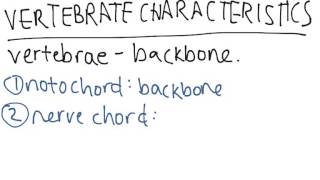 VERTEBRATE CHARACTERISTICS
vertebrae - backbone.
① notochord: backbone
② nerve chord: